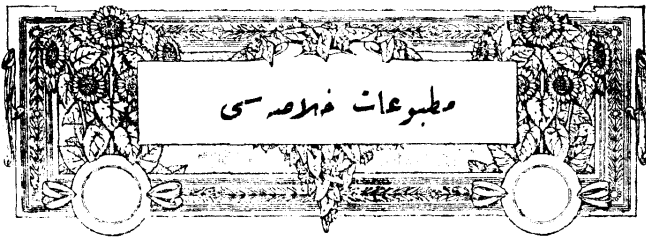 مطبوعات خلاصه سی